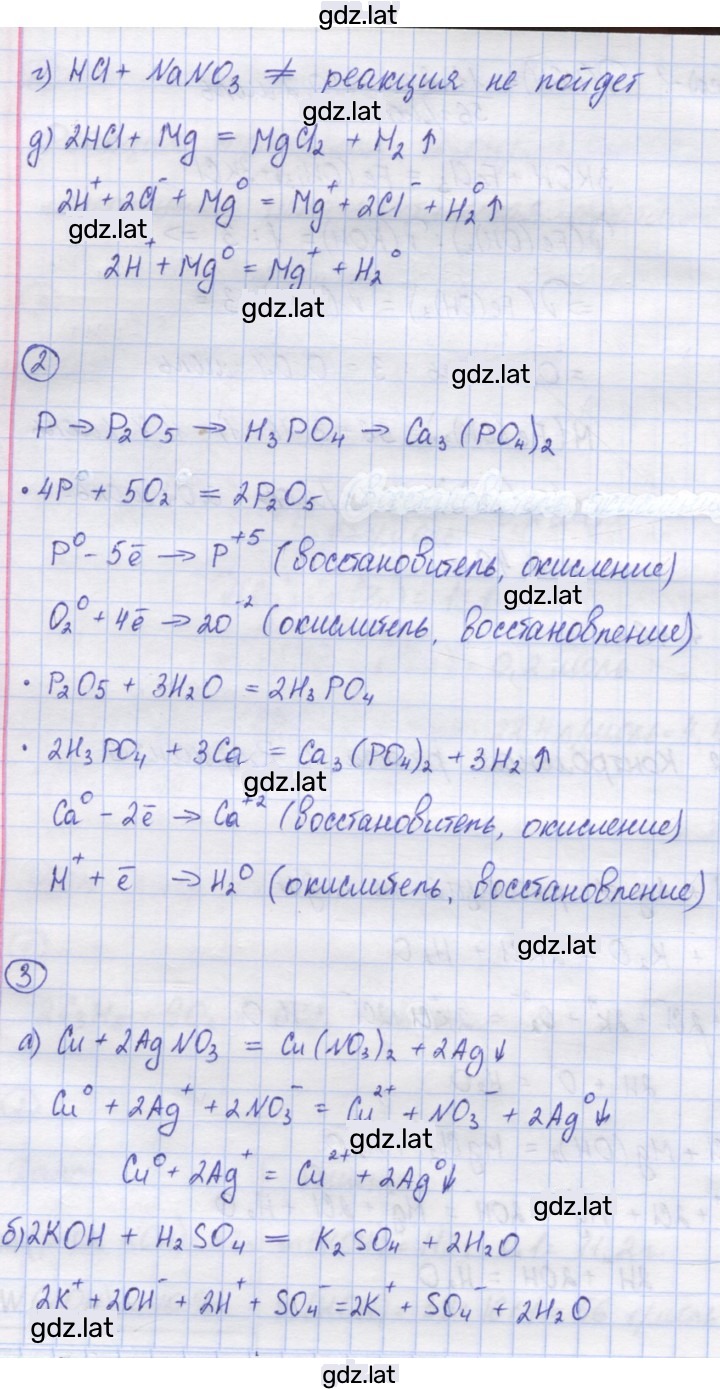 gdz.lat
г) HCl + NaNO₃ ≠ реакция не пойдет
gdz.lat
д) 2HCl + Mg = MgCl₂ + H₂↑
2H⁺ + 2Cl⁻ + Mg⁰ = Mg⁺ + 2Cl⁻ + H₂⁰↑
gdz.lat
2H⁺ + Mg⁰ = Mg⁺ + H₂⁰
gdz.lat
2
gdz.lat
P → P₂O₅ → H₃PO₄ → Ca₃(PO₄)₂
• 4P + 5O₂ = 2P₂O₅
P⁰ - 5ē → P⁺⁵ (восстановитель, окисление)
gdz.lat
O₂⁰ + 4ē → 2O⁻² (окислитель, восстановление)
• P₂O₅ + 3H₂O = 2H₃PO₄
• 2H₃PO₄ + 3Ca = Ca₃(PO₄)₂ + 3H₂↑
gdz.lat
Ca⁰ - 2ē → Ca⁺² (восстановитель, окисление)
H⁺ + ē → H₂⁰ (окислитель, восстановление)
gdz.lat
3
а) Cu + 2AgNO₃ = Cu(NO₃)₂ + 2Ag↓
Cu⁰ + 2Ag⁺ + 2NO₃⁻ = Cu²⁺ + NO₃⁻ + 2Ag⁰↓
gdz.lat
Cu⁰ + 2Ag⁺ = Cu²⁺ + 2Ag⁰↓
gdz.lat
б) 2KOH + H₂SO₄ = K₂SO₄ + 2H₂O
2K⁺ + 2OH⁻ + 2H⁺ + SO₄⁻ = 2K⁺ + SO₄⁻ + 2H₂O
gdz.lat
gdz.lat